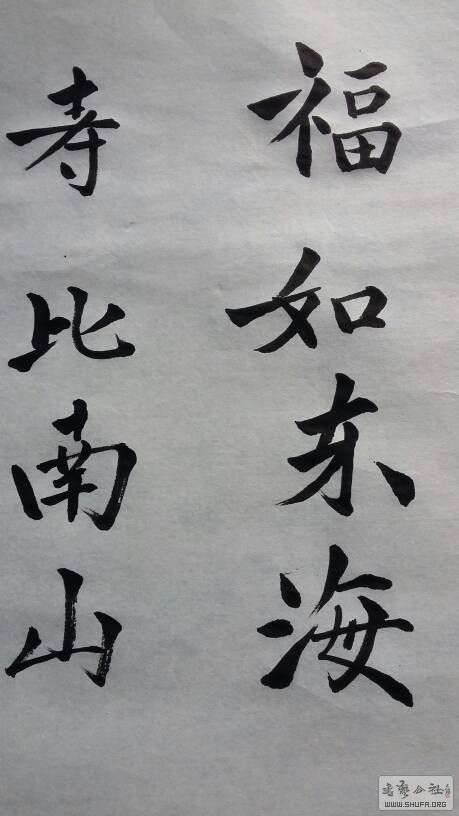 福如东海
寿比南山
WWW.SHUFA.ORG